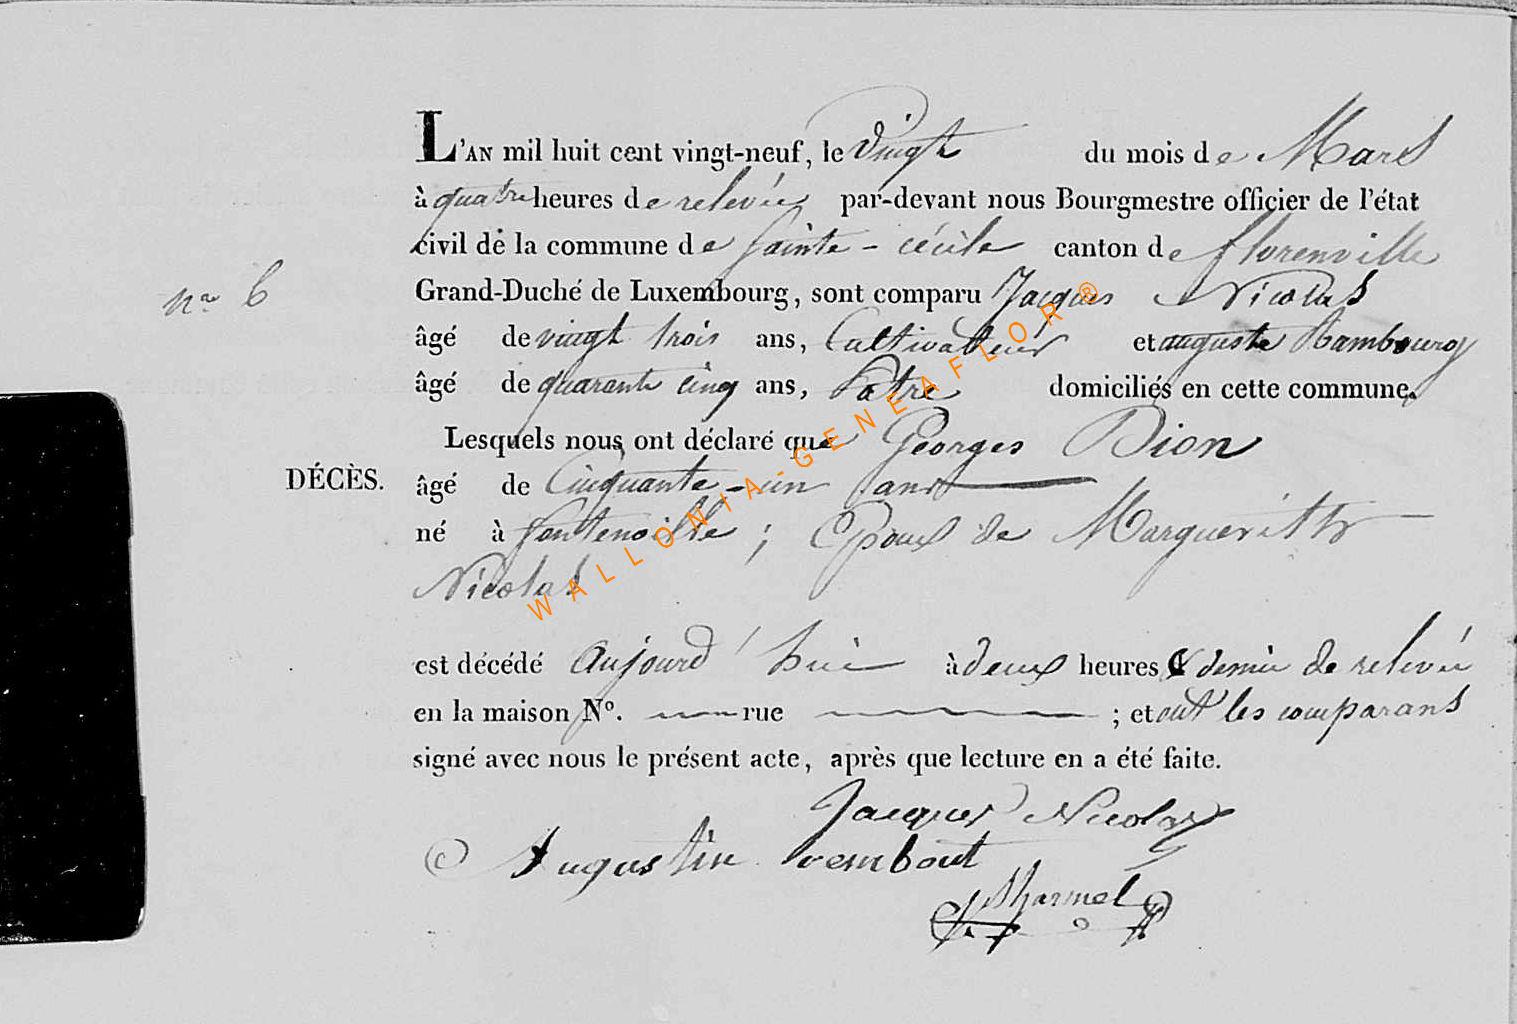 L'AN mil huit cent vingt-neuf, le vingt du mois de Mars
à quatre heures de relevée par-devant nous Bourgmestre officier de l'état
civil de la commune de Sainte-cécile canton de florenville
nro 6
Grand-Duché de Luxembourg, sont comparu Jacques Nicolas
âgé de vingt trois ans, Cultivateur et auguste Rambourg
âgé de quarante cinq ans, Patre domiciliés en cette commune.
Lesquels nous ont déclaré que Georges Dion
DÉCÈS.
âgé de Cinquante-un ans
né à fontenoille ; Epoux de Margueritte
Nicolas
est décédé aujourd'hui à deux heures & demie de relevée
en la maison No. rue ; et ont les comparans
signé avec nous le présent acte, après que lecture en a été faite.
Jacques Nicolas
Augustin
WALLONIA-GENEAFLOR ®